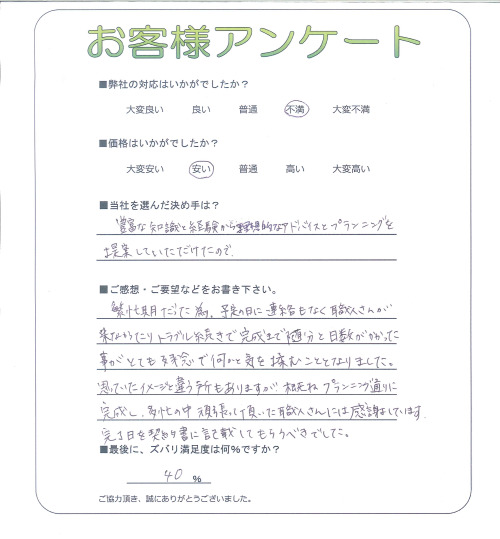 お客様アンケート
■弊社の対応はいかがでしたか？
大変良い 良い 普通 不満 大変不満
■価格はいかがでしたか？
大変安い 安い 普通 高い 大変高い
■当社を選んだ決め手は？
豊富な知識と経験から理想的なアドバイスとプランニングを
提案していただけたので
■ご感想・ご要望などをお書き下さい。
繁忙期だった為、予定の日に連絡もなく職人さんが
来なかったりトラブル続きで完成まで随分と日数がかかった
事がとても残念で何かと気を揉むこととなりました。
思っていたイメージと違う所もありますが概ねプランニング通りに
完成し、多忙の中頑張って頂いた職人さんには感謝しています。
完了日を契約書に記載してもらうべきでした。
■最後に、ズバリ満足度は何%ですか？
40 %
ご協力頂き、誠にありがとうございました。